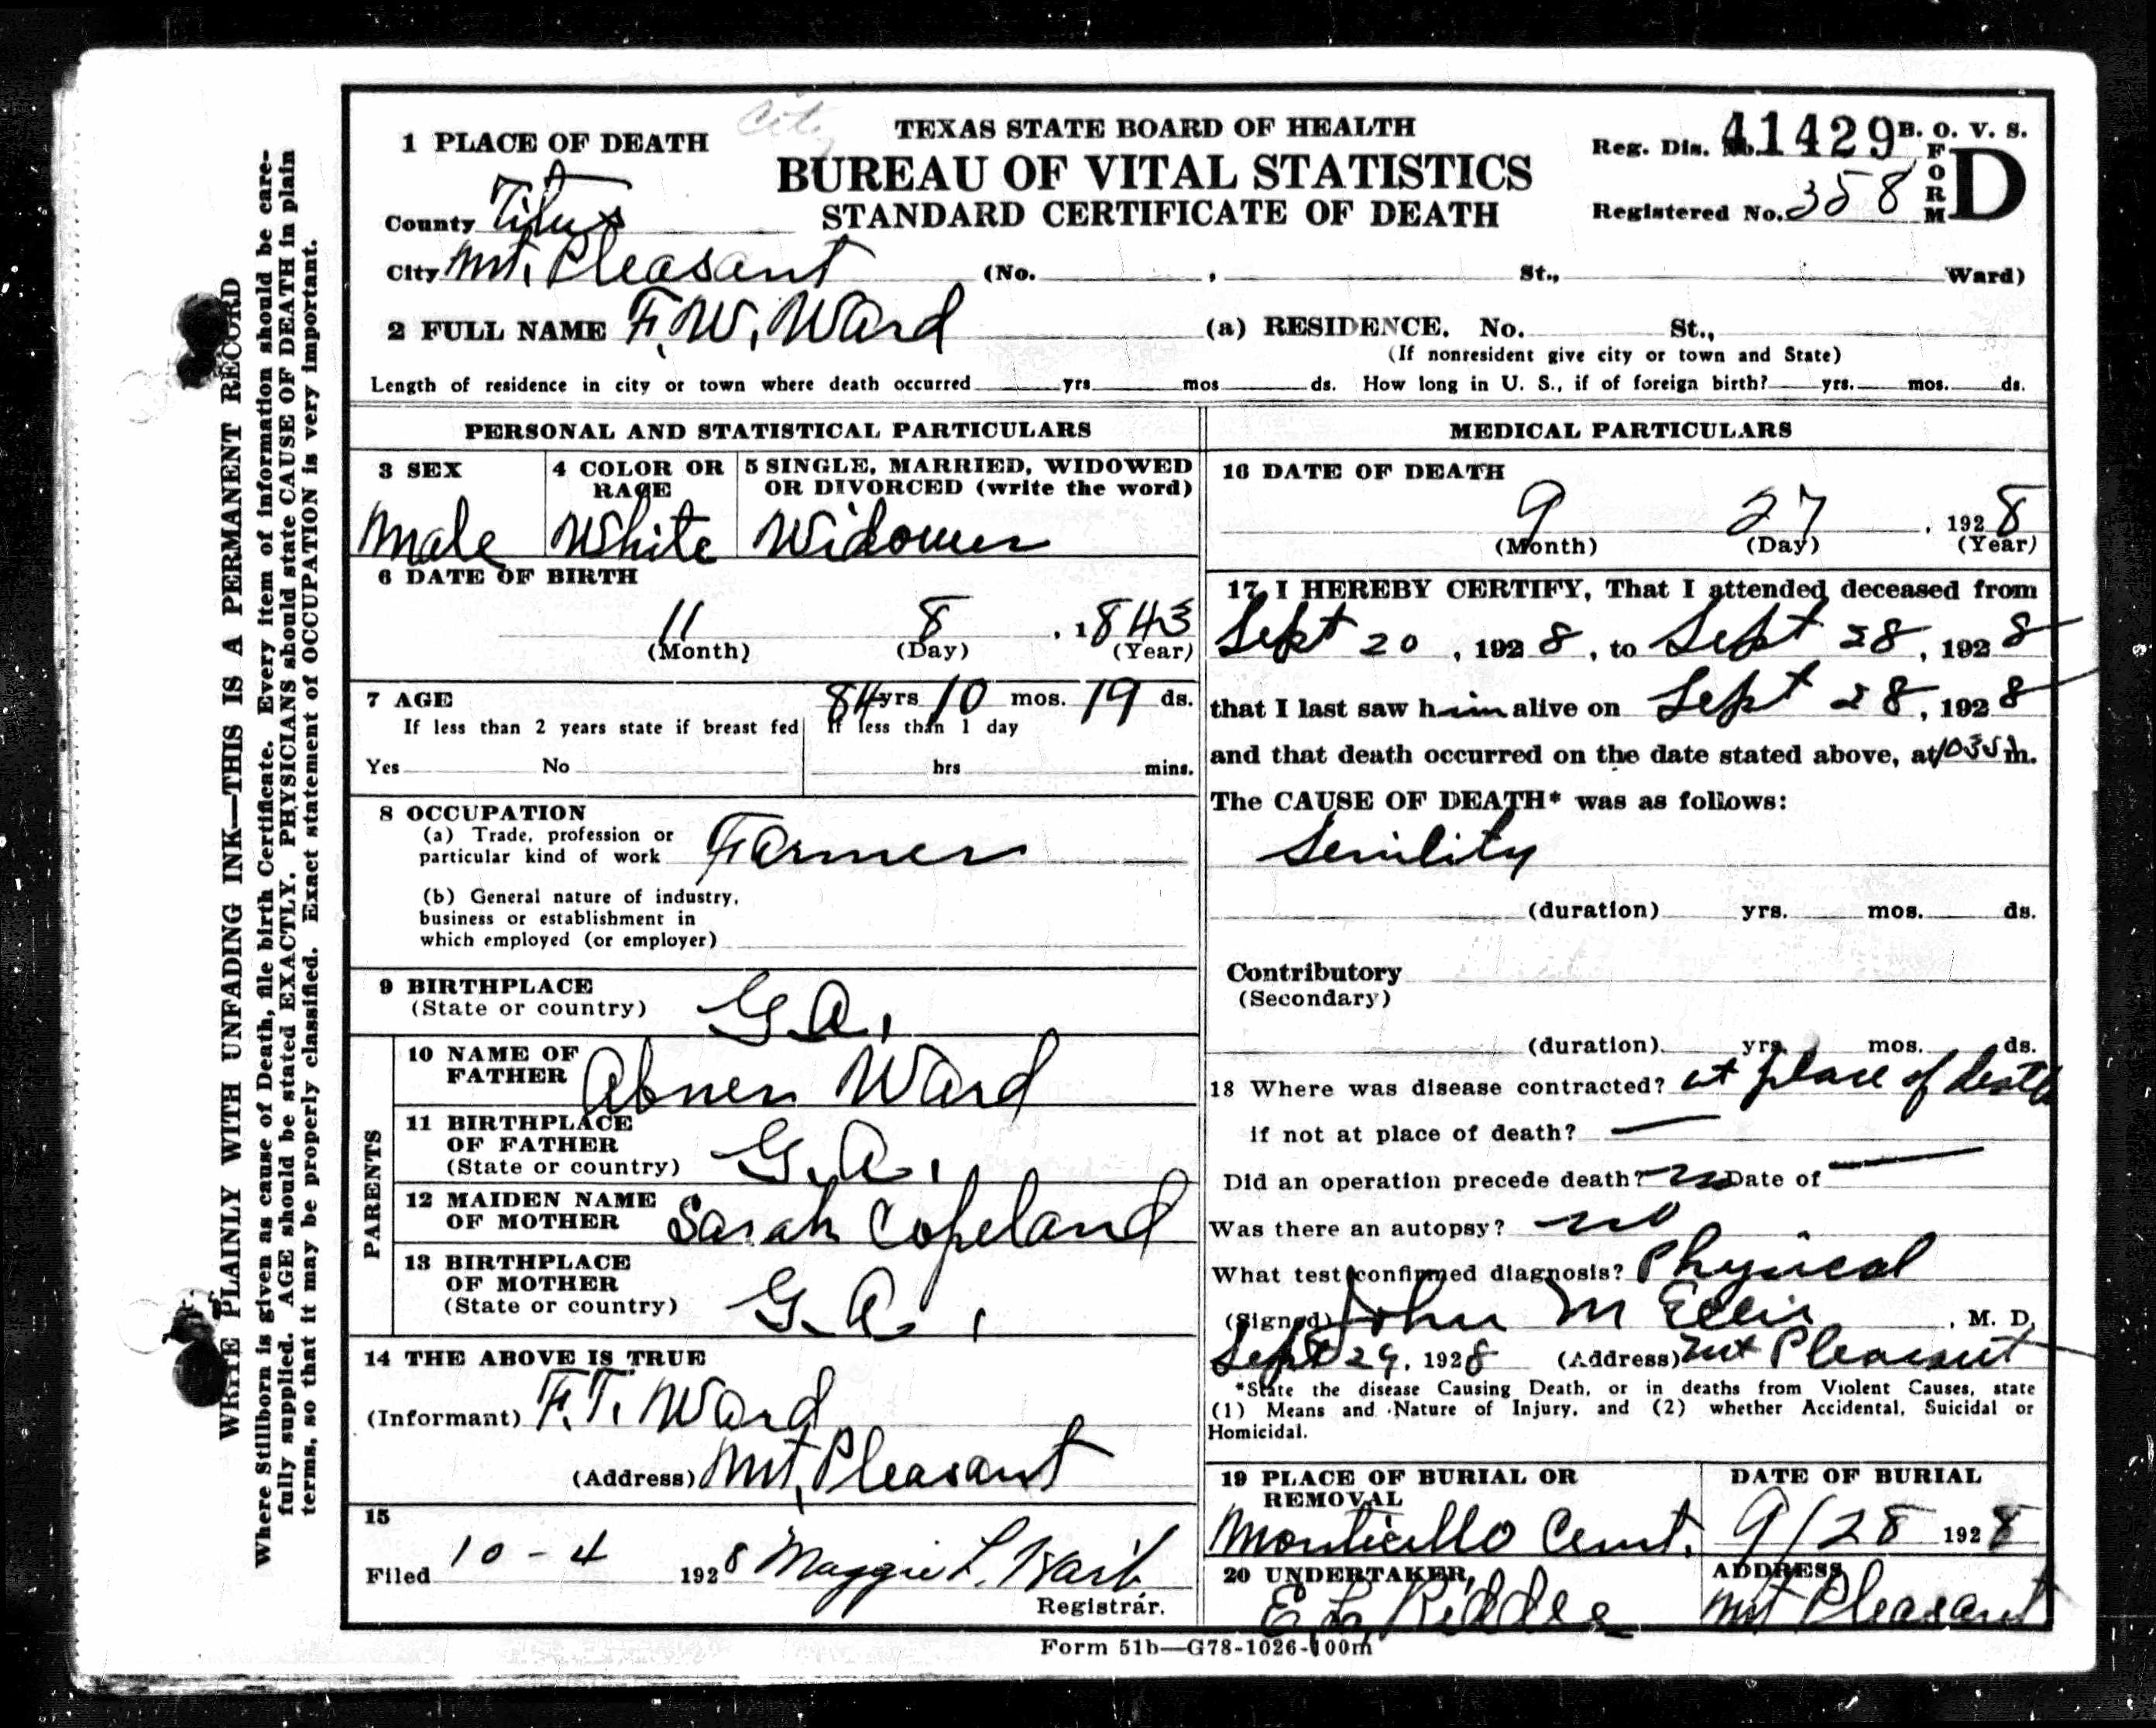 City
TEXAS STATE BOARD OF HEALTH
BUREAU OF VITAL STATISTICS
STANDARD CERTIFICATE OF DEATH
Reg. Dis. No. 41429 B. O. V. S.
FORM D
Registered No. 358
1 PLACE OF DEATH
County Titus
City Mt. Pleasant (No. , St., Ward)
2 FULL NAME F. W. Ward (a) RESIDENCE. No. St.,
(If nonresident give city or town and State)
Length of residence in city or town where death occurred yrs mos ds. How long in U. S., if of foreign birth? yrs. mos. ds.
PERSONAL AND STATISTICAL PARTICULARS
3 SEX
Male
4 COLOR OR
RACE
White
5 SINGLE, MARRIED, WIDOWED
OR DIVORCED (write the word)
Widower
6 DATE OF BIRTH
11 8 , 1843
(Month) (Day) (Year)
7 AGE 84 yrs 10 mos. 19 ds.
If less than 2 years state if breast fed
Yes No
If less than 1 day
hrs mins.
8 OCCUPATION
(a) Trade, profession or
particular kind of work Farmer
(b) General nature of industry,
business or establishment in
which employed (or employer)
9 BIRTHPLACE
(State or country) Ga.
PARENTS
10 NAME OF
FATHER Abner Ward
11 BIRTHPLACE
OF FATHER
(State or country) Ga.
12 MAIDEN NAME
OF MOTHER Sarah Copeland
13 BIRTHPLACE
OF MOTHER
(State or country) Ga.
14 THE ABOVE IS TRUE
(Informant) F. T. Ward
(Address) Mt. Pleasant
15
Filed 10-4 1928 Maggie L.
Registrar.
MEDICAL PARTICULARS
16 DATE OF DEATH
9 27 , 1928
(Month) (Day) (Year)
17 I HEREBY CERTIFY, That I attended deceased from
Sept 20, 1928, to Sept 28, 1928
that I last saw him alive on Sept 28, 1928
and that death occurred on the date stated above, at 1035 m.
The CAUSE OF DEATH* was as follows:
Senility
(duration) yrs. mos. ds.
Contributory
(Secondary)
(duration) yrs. mos. ds.
18 Where was disease contracted? at place of death
if not at place of death? —
Did an operation precede death? no Date of —
Was there an autopsy? no
What test confirmed diagnosis? Physical
(Signed) John M Ellis, M. D.
Sept 29, 1928 (Address) Mt Pleasant
*State the disease Causing Death, or in deaths from Violent Causes, state
(1) Means and Nature of Injury, and (2) whether Accidental, Suicidal or
Homicidal.
19 PLACE OF BURIAL OR
REMOVAL
Monticello Cemt.
DATE OF BURIAL
9/28 1928
20 UNDERTAKER,
E. L. Riddle
ADDRESS
Mt Pleasant
Form 51b—G78-1026-100m
WRITE PLAINLY WITH UNFADING INK—THIS IS A PERMANENT RECORD
Where Stillborn is given as cause of Death, file birth Certificate. Every item of information should be care-
fully supplied. AGE should be stated EXACTLY. PHYSICIANS should state CAUSE OF DEATH in plain
terms, so that it may be properly classified. Exact statement of OCCUPATION is very important.